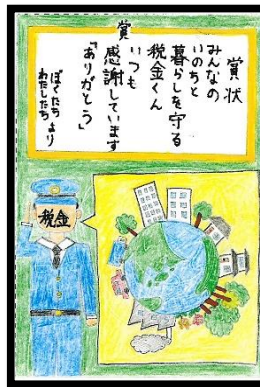 賞状
みんなの
いのちと
暮らしを守る
税金くん
賞
いつも
感謝しています
「ありがとう」
ぼくたち より
わたしたち
税金